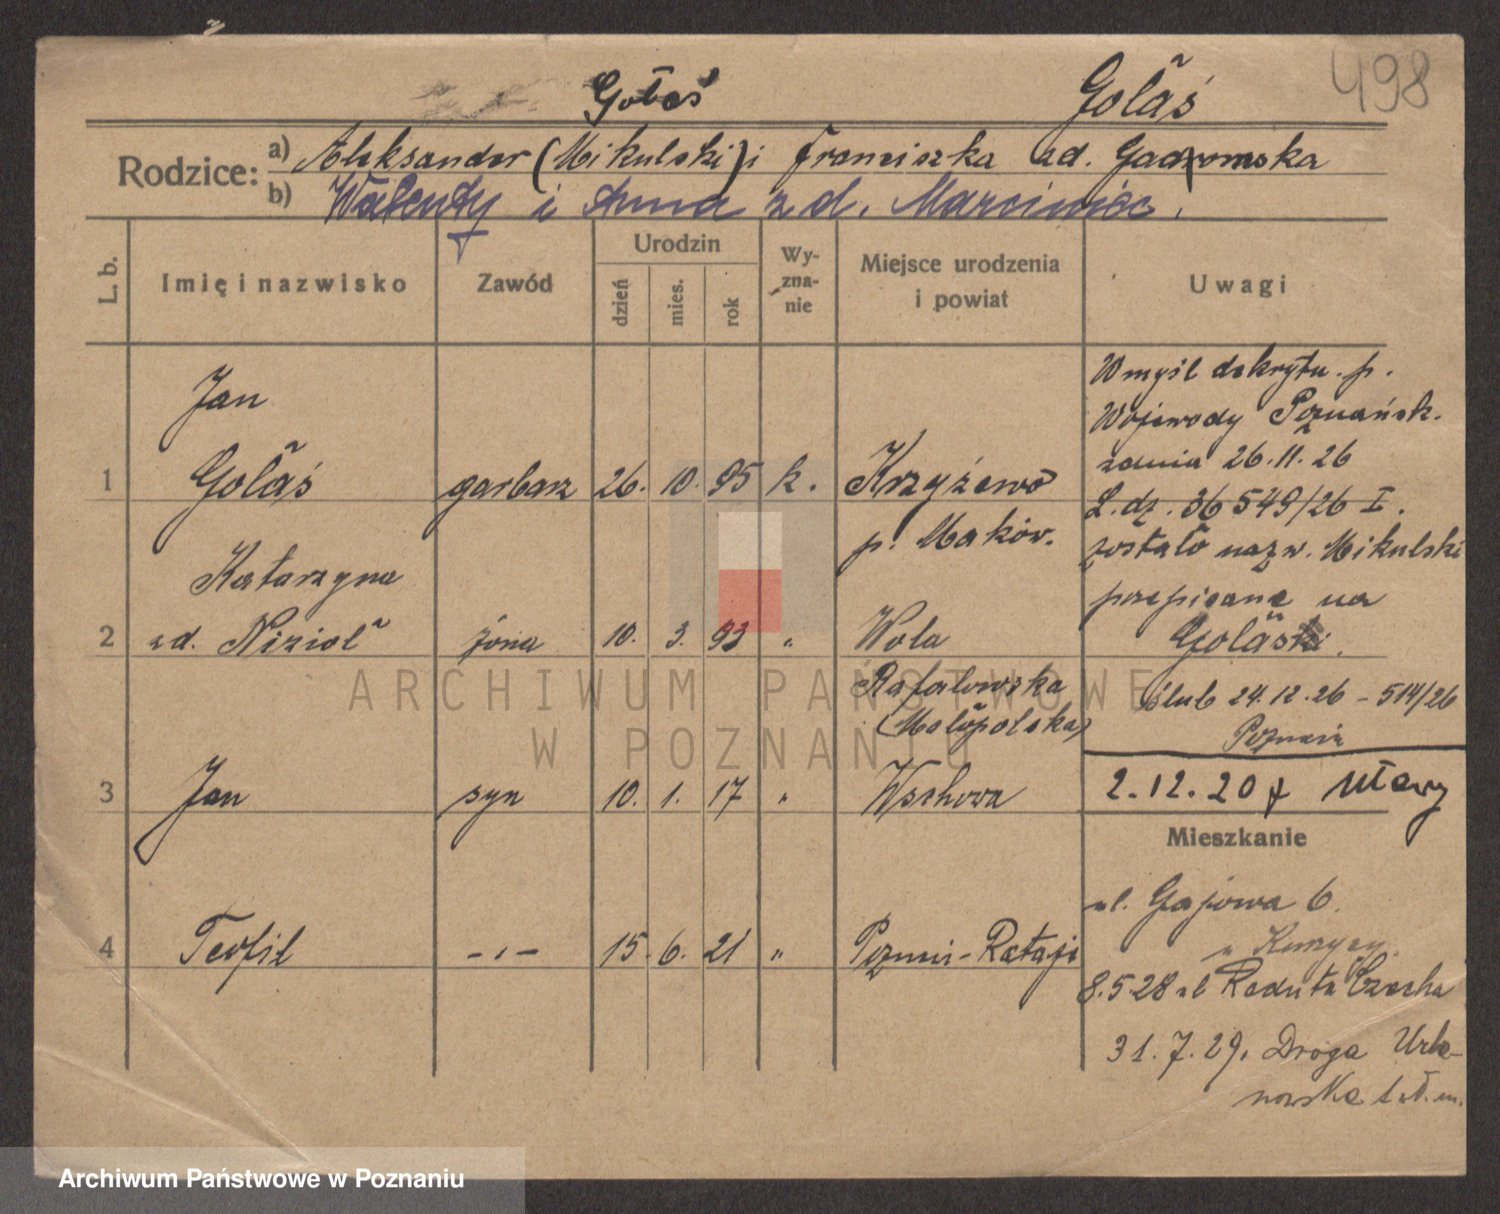 498
Gołaś Gołaś
Rodzice: a) Aleksander (Mikulski) i Franciszka zd. Gadzomska
b) Walenty i Anna z d. Marciniec.
L. b. Imię i nazwisko Zawód Urodzin dzień mies. rok Wy-zna-nie Miejsce urodzenia i powiat Uwagi
Jan
1 Gołaś garbarz 26. 10. 95 k. Krzyżewo
p. Maków.
Katarzyna
2 zd. Nizioł żona 10. 3. 93 „ Wola
Rafałowska
(Małopolska)
3 Jan syn 10. 1. 17 „ Wschowa
4 Teofil -„- 15. 6. 21 „ Poznań-Rataje
W myśl dekrytu p.
Wojewody Poznańsk.
zdnia 26.11.26
L. dz. 36549/26 I.
zostało nazw. Mikulski
przepisane na
Gołaś.
ślub 24.12.26 - 514/26
Poznań
2.12.20 z Mławy
Mieszkanie
ul. Gajowa 6.
„
8.5 28 ul Reduta Czecha
31.7.29. Droga Urba-
nowska
ARCHIWUM PAŃSTWOWE
W POZNANIU
Archiwum Państwowe w Poznaniu